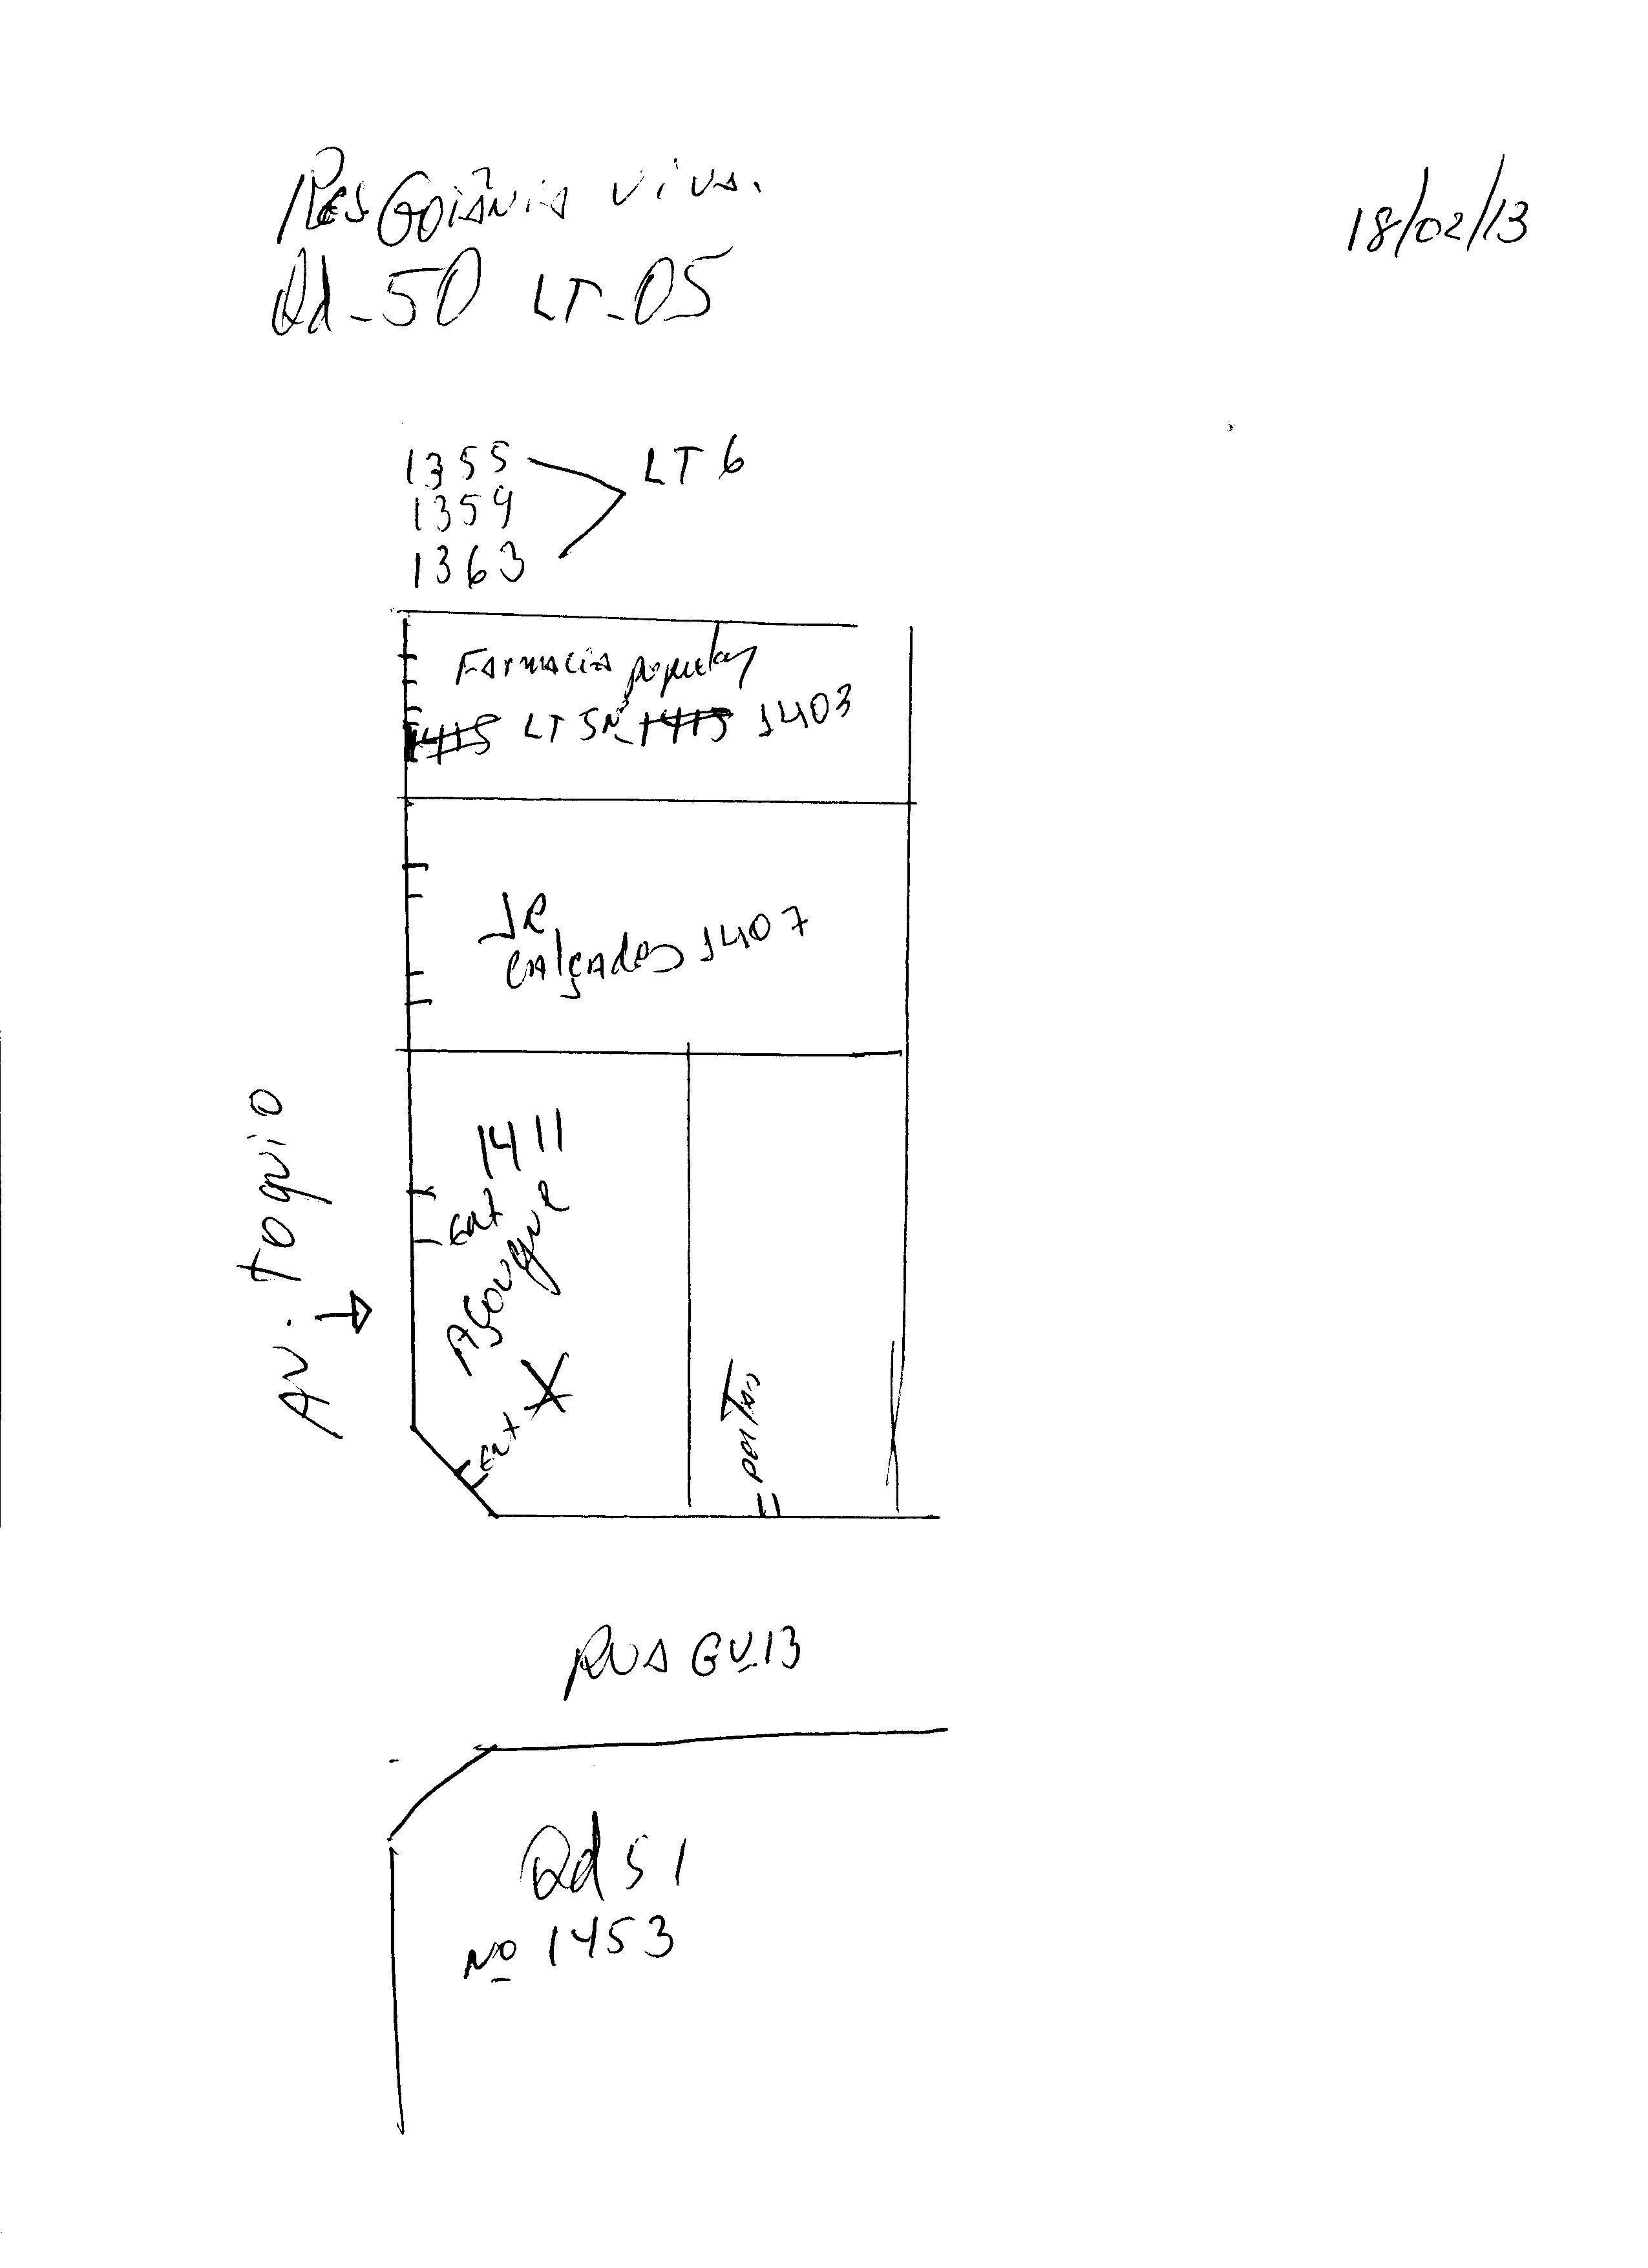 Res Goiânia Viva.
18/02/13
Qd - 50 LT - 05
1355
LT 6
1359
1363
Farmacia popular
1415 LT 5 Nº 1415 1403
JR
Calçados 1407
1411
Ent
Açougue
Ent X
portão
Av. Toquio
Rua GV.13
Qd 51
Nº 1453